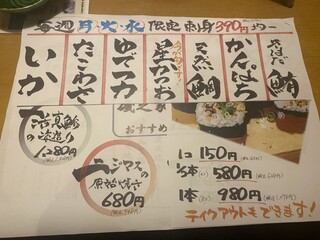 毎週 月・火・水 限定 刺身 390円 均一
鮪
かんぱち
天然 鯛
星かつお
ゆでタカ
たこわさ
いか
おすすめ
1コ 150円
1/2本 580円
1本 980円
テイクアウトもできます!
ニジマスの
原始焼き
680円
活真鯵
の
1280円